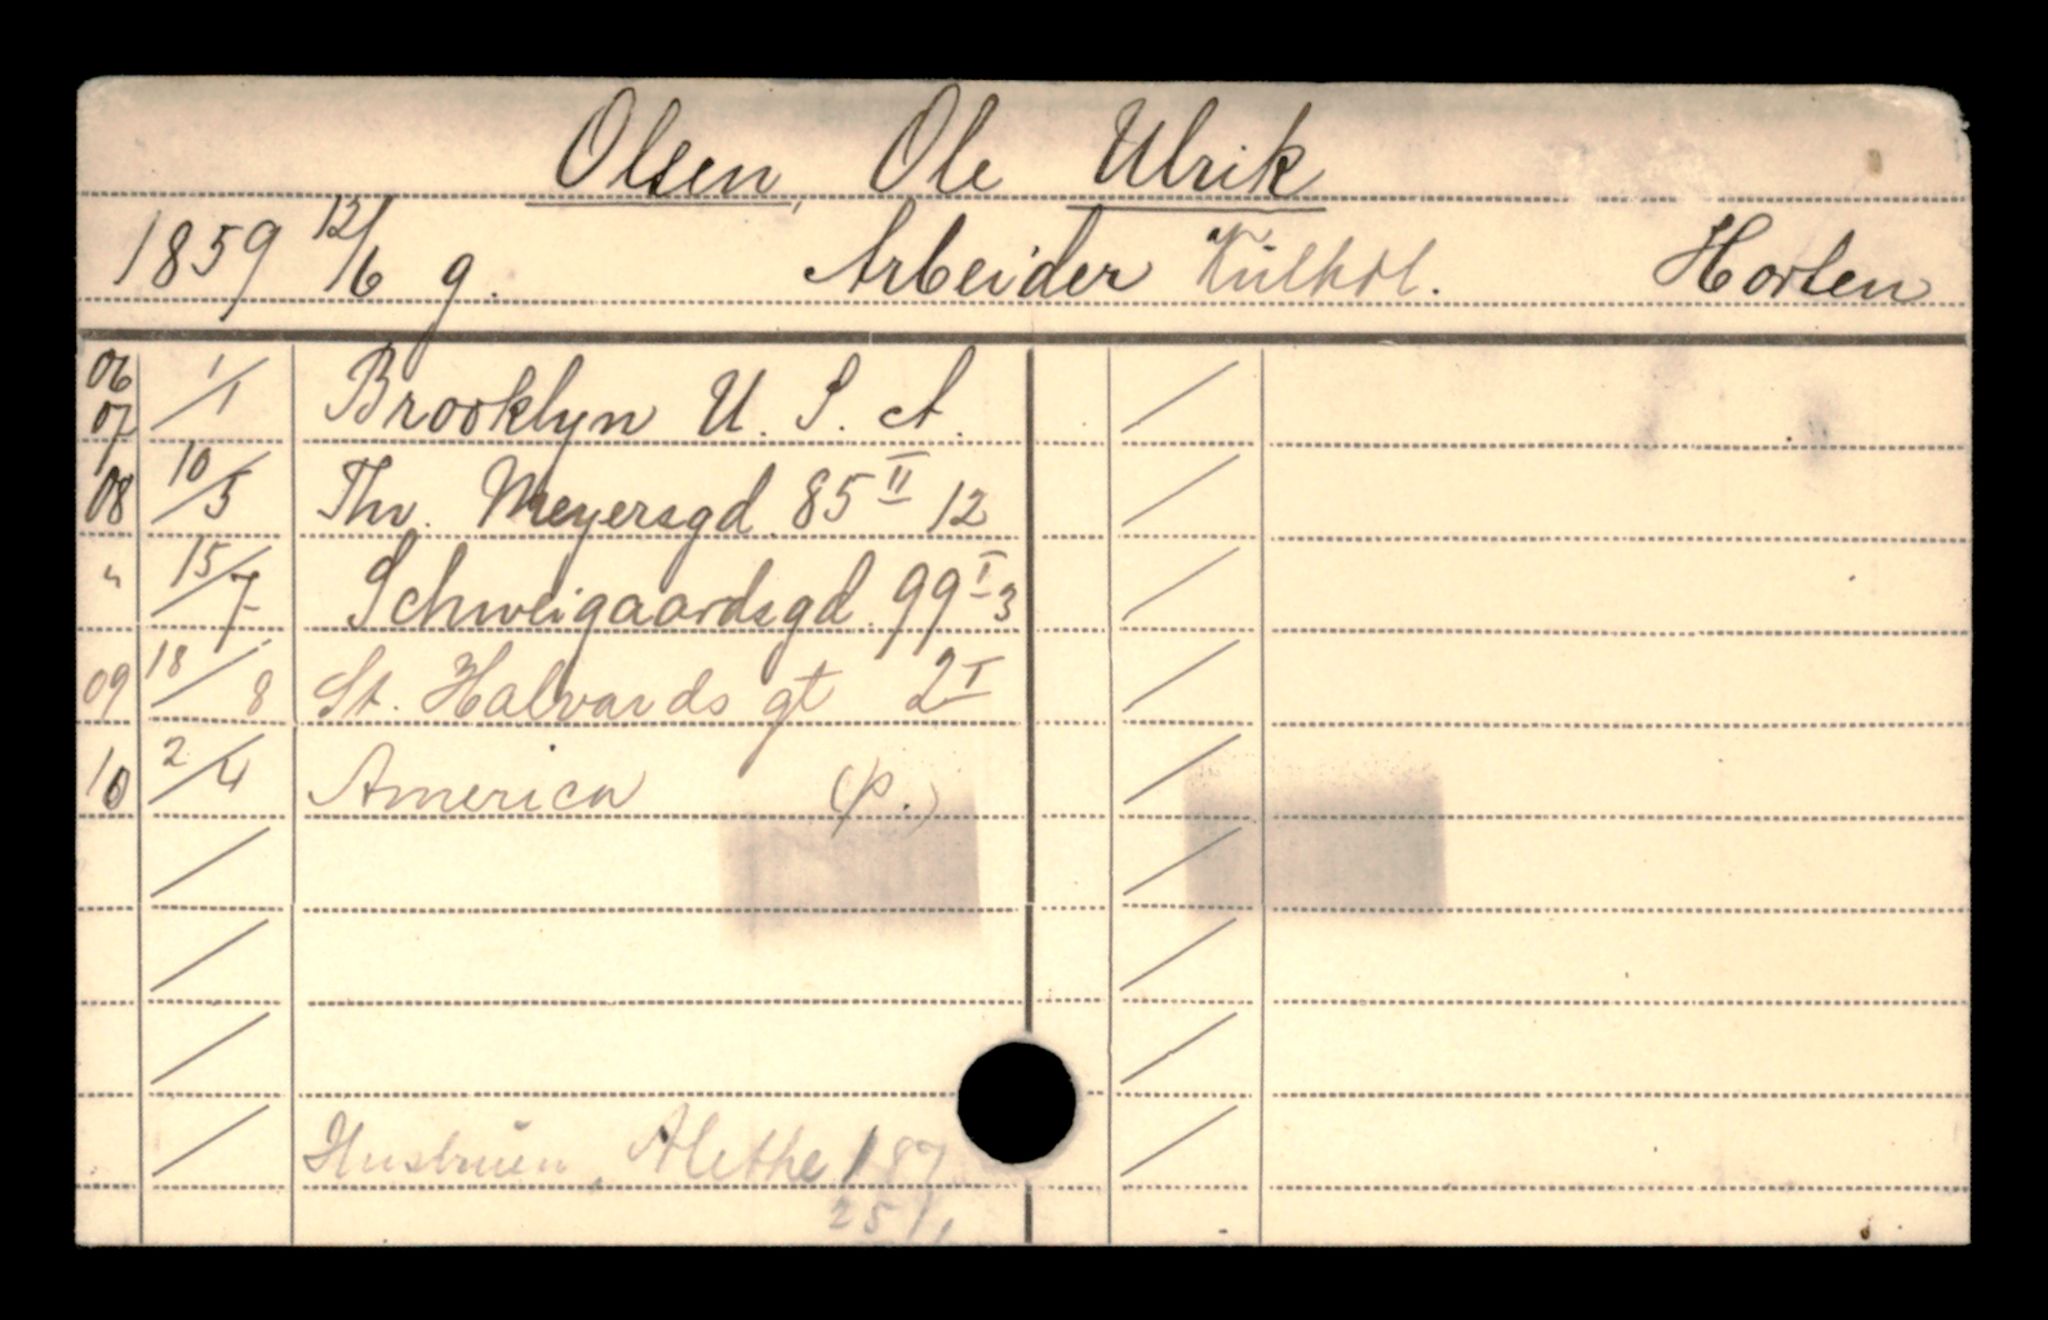 Olsen, Ole Ulrik
1859 12/6 g. Arbeider Kulhdl. Horten
06
07 1/1 Brooklyn U. S. A.
08 10/5 Thv. Meyersgd. 85 II 12
" 15/7 Schweigaardsgd. 99 I 3
09 18/8 St. Halvards gt 2 I
10 2/4 America (p.)
Hustruen, Alethe 187
25/1